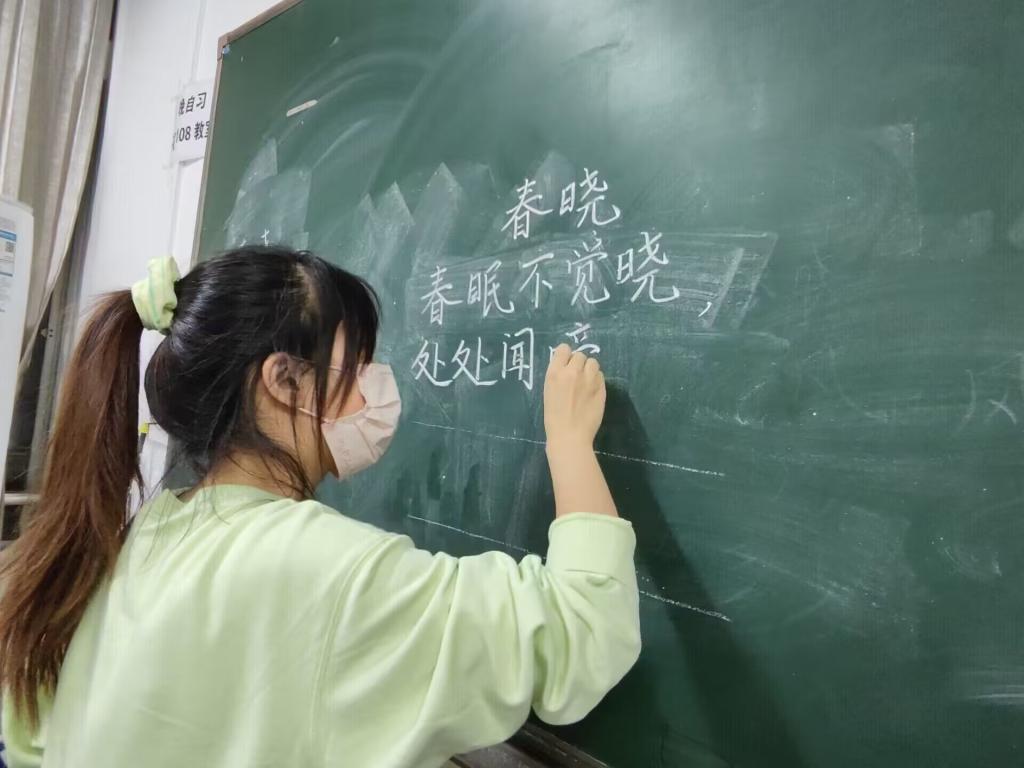 晚自习
108 教室
春晓
春眠不觉晓，
处处闻啼